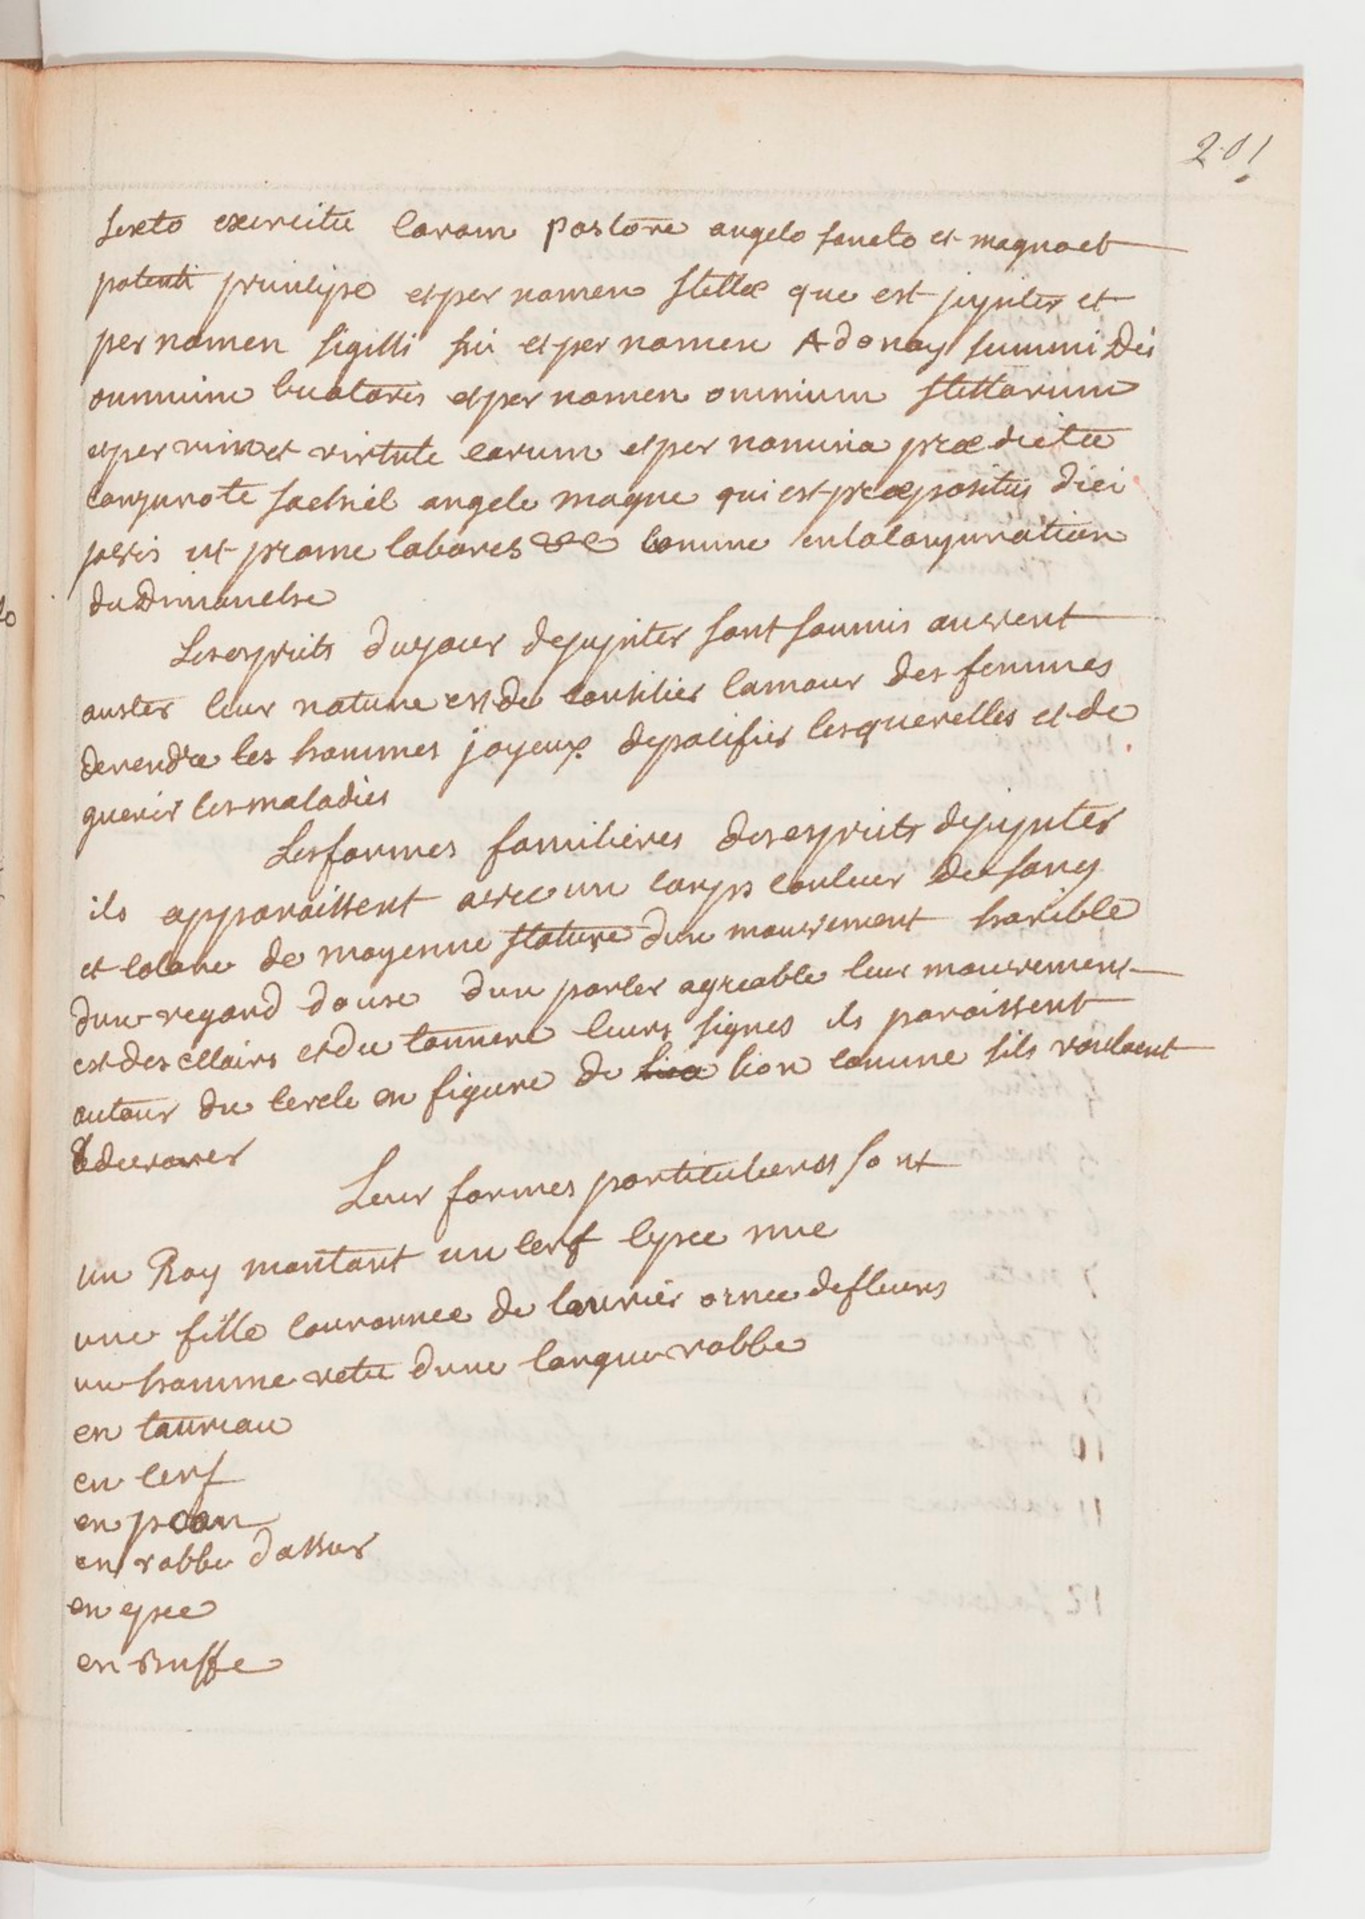 201
sexto exercitu coram pastore angelo sancto et magno et
potenti principe et per nomen stellæ que est jupiter et
per nomen sigilli sui et per nomen Adonay summi Dei
omnium creatoris et per nomen omnium stellarum
et per vim et virtute earum et per nomina prædicta
conjuro te sachiel angele magne qui est præpositus diei
jovis ut pro me labores &c comme en la conjuration
du Dimanche
Les esprits du jour de jupiter sont soumis au vent
auster leur nature est de concilier lamour des femmes
de rendre les hommes joyeux de pacifier les querelles et de
guerir les maladies
Les formes familieres des esprits de jupiter
ils apparoissent avec un corps couleur de sang
et colere de moyenne stature dun mouvement horible
dun regard doux dun parler agreable leur mouvement
est des eclairs et du tonnere leurs signes ils paroissent
autour du cercle en figure de lion comme sils vouloient
devorer
Leur formes particulieres sont
un Roy montant un cerf lepée nue
une fille couronnee de laurier ornee de fleurs
un homme vetu dune longue robbe
en taureau
en cerf
en paon
en robbe dassur
en epée
en Buffe